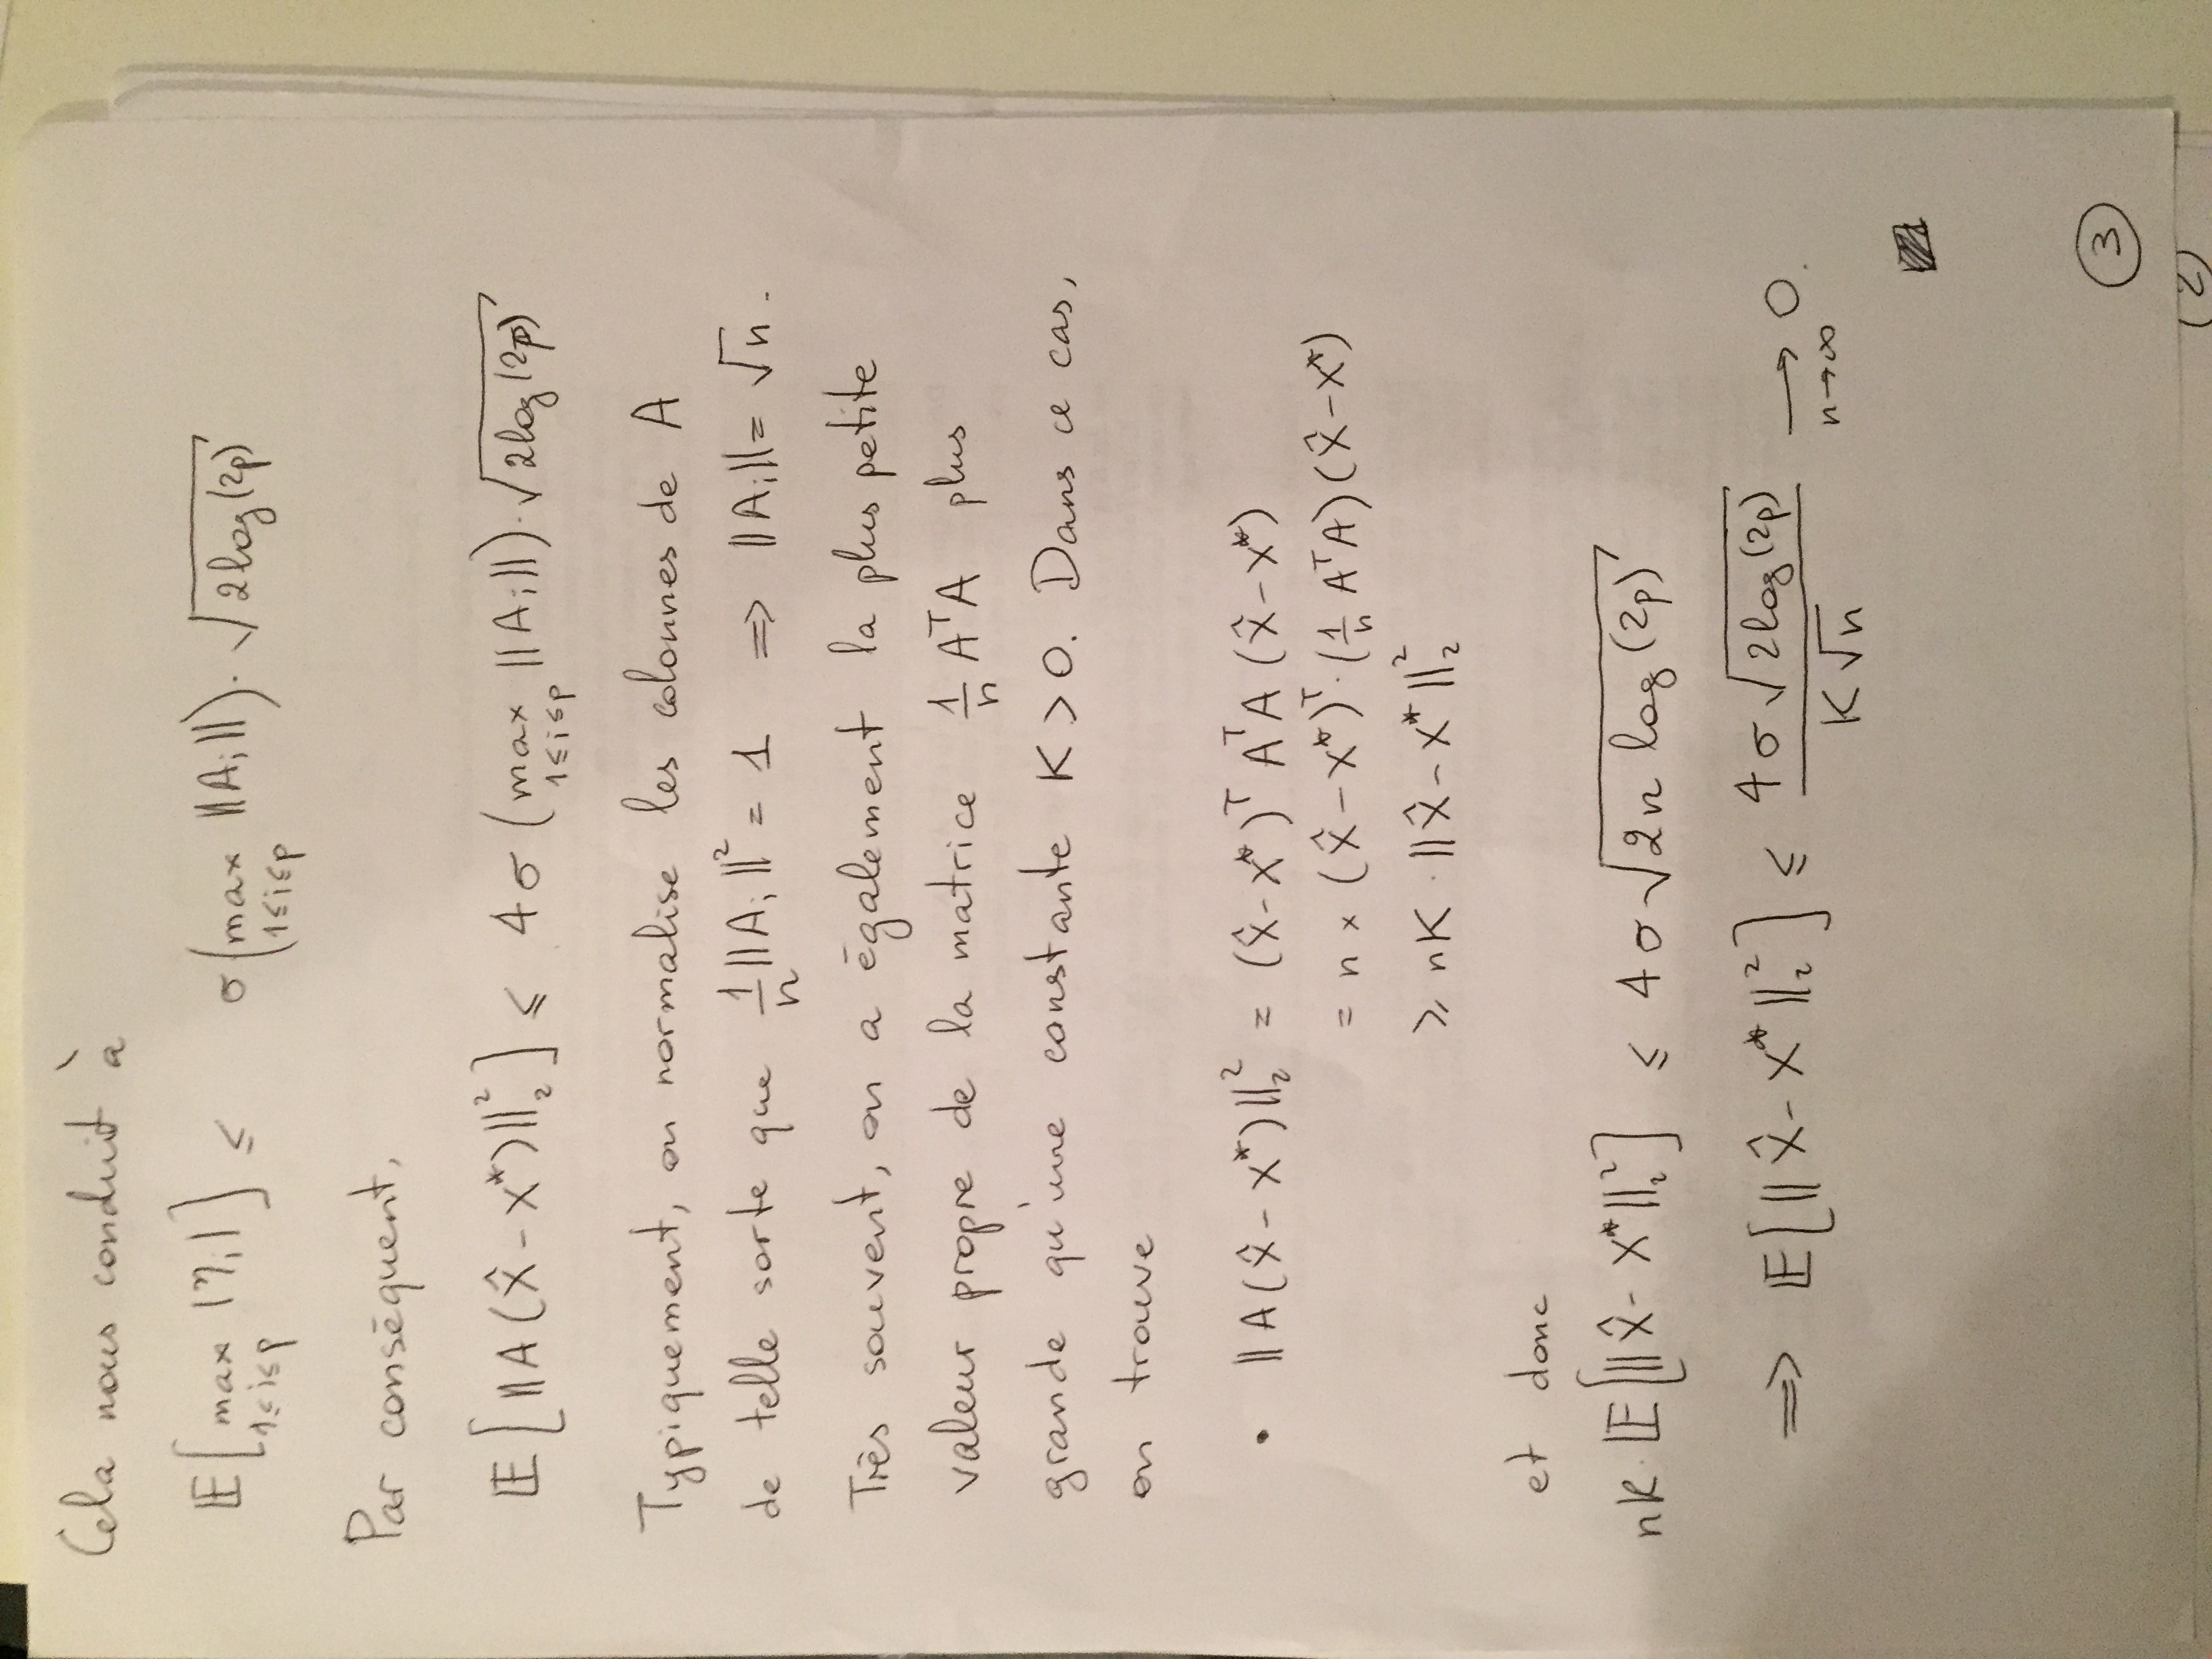 Cela nous conduit à
𝔼[max_{1≤i≤p} |η_i|] ≤ σ(max_{1≤i≤p} ||A_i||)·√(2log(2p))
Par conséquent,
𝔼[||A(x̂-x*)||₂²] ≤ 4σ(max_{1≤i≤p} ||A_i||)·√(2log(2p))
Typiquement, on normalise les colonnes de A
de telle sorte que 1/n ||A_i||² = 1 ⇒ ||A_i|| = √n.
Très souvent, on a également la plus petite
valeur propre de la matrice 1/n AᵀA plus
grande qu'une constante K > 0. Dans ce cas,
on trouve
• ||A(x̂-x*)||₂² = (x̂-x*)ᵀAᵀA(x̂-x*)
= n × (x̂-x*)ᵀ·(1/n AᵀA)(x̂-x*)
≥ nK·||x̂-x*||₂²
et donc
nK·𝔼[||x̂-x*||₂²] ≤ 4σ√(2n log(2p))
⇒ 𝔼[||x̂-x*||₂²] ≤ 4σ√(2log(2p)) / K√n ⟶_{n→∞} 0.
3
(2)